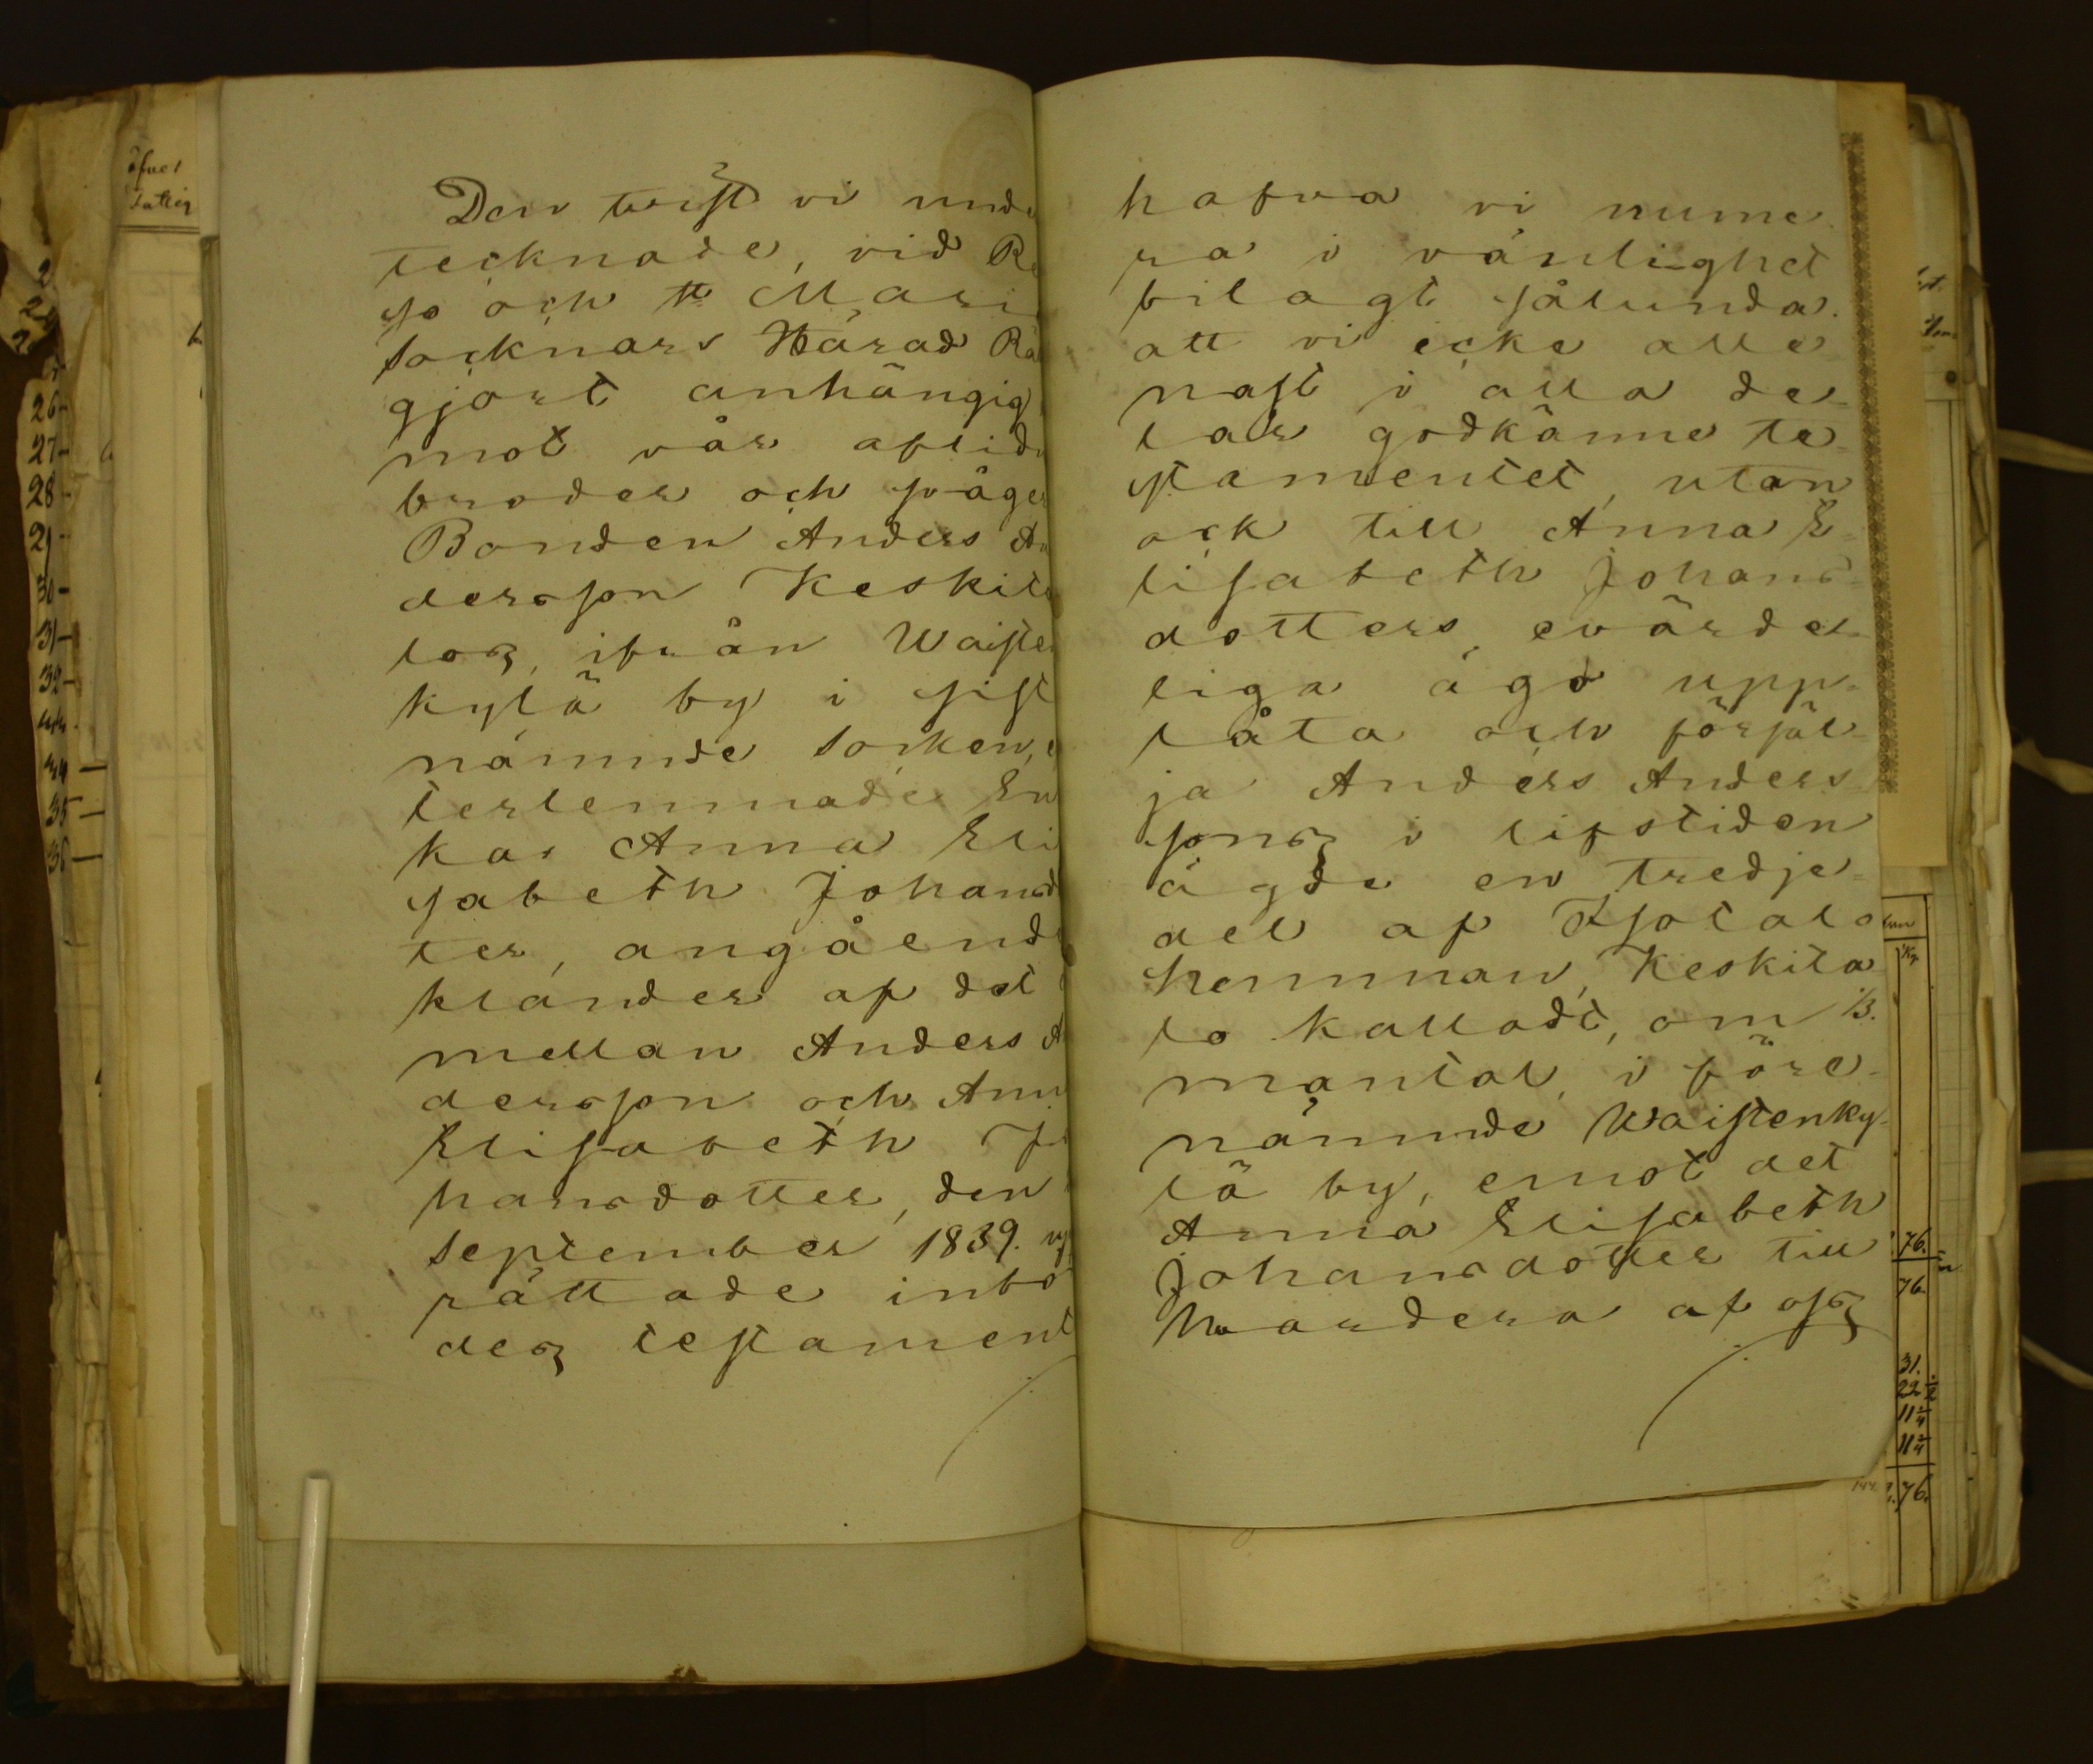 Den twist vi unde
tecknade, vid Re
so och tt Mari
Socknars Härad Rä
gjort anhängig
mot vår aflidn
broder och svåger
Bonden Anders An
dersson Keskita
los, ifrån Waiste
kylä by i sist
nämnde Socken, e
terlemnade En
ka, Anna Eli
sabeth Johansd
ter, angående
klander af det
mellan Anders A
dersson och Ann
Elisabeth Jo
hansdotter, den
September 1839. up
rättade inbö
des testament
hafva vi nume
ra i vänlighet
bilagt sålunda.
att vi icke alle
nast i alla de-
lar godkänne te-
stamentet, utan
ock till Anna E-
lisabeth Johans
dotters, evärde-
liga ägo upp-
låta och försäl-
ja Anders Anders
sons i lifstiden
ägde en tredje-
del af Isotalo
hemman, Keskita
lo kalladt, om 1/3.
mantal, i före-
nämnde Waistenky-
lä by, emot det
Anna Elisabeth
Johansdotter till
hvardera af oss
26-
27-
28-
29-
30-
31-
32-
35
36
76.
76.
31.
22 1/2
11 1/4
11 1/4
76.